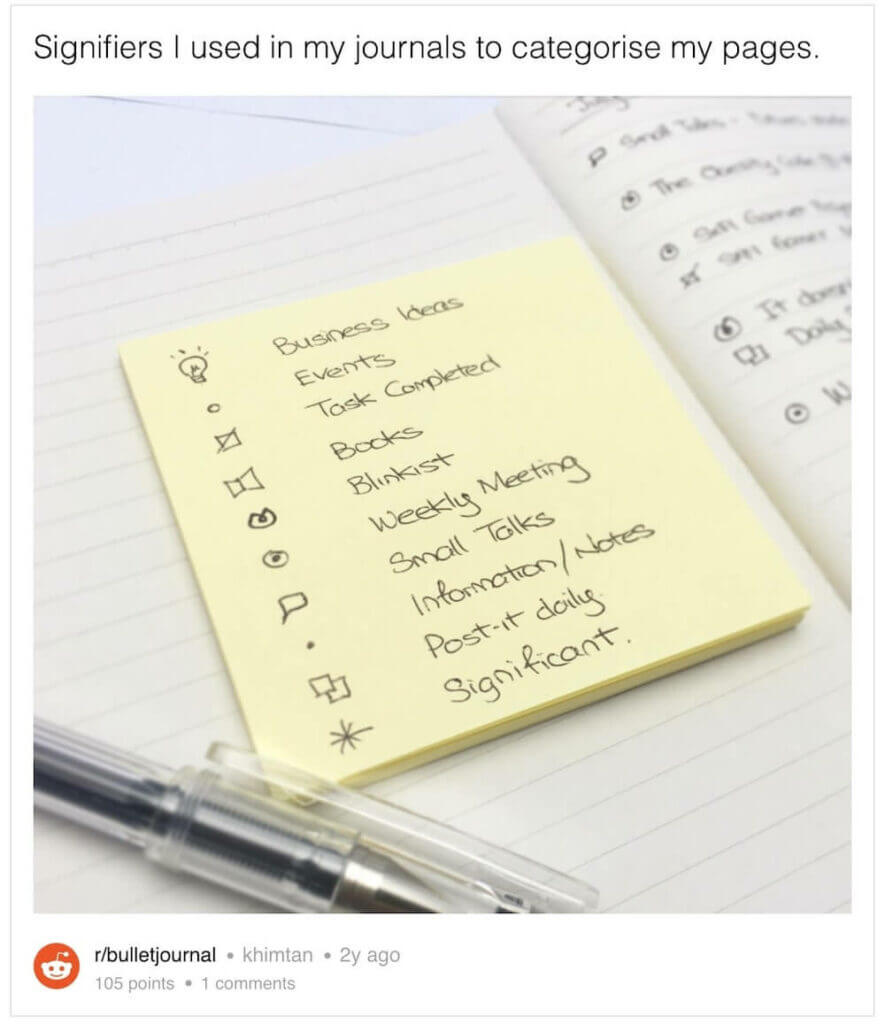 Signifiers I used in my journals to categorise my pages.
Small Talks -
The Obesity Code
It
Daily
Business Ideas
Events
Task Completed
Books
Blinkist
Weekly Meeting
Small Talks
Information/Notes
Post-it daily.
Significant.
r/bulletjournal • khimtan • 2y ago
105 points • 1 comments